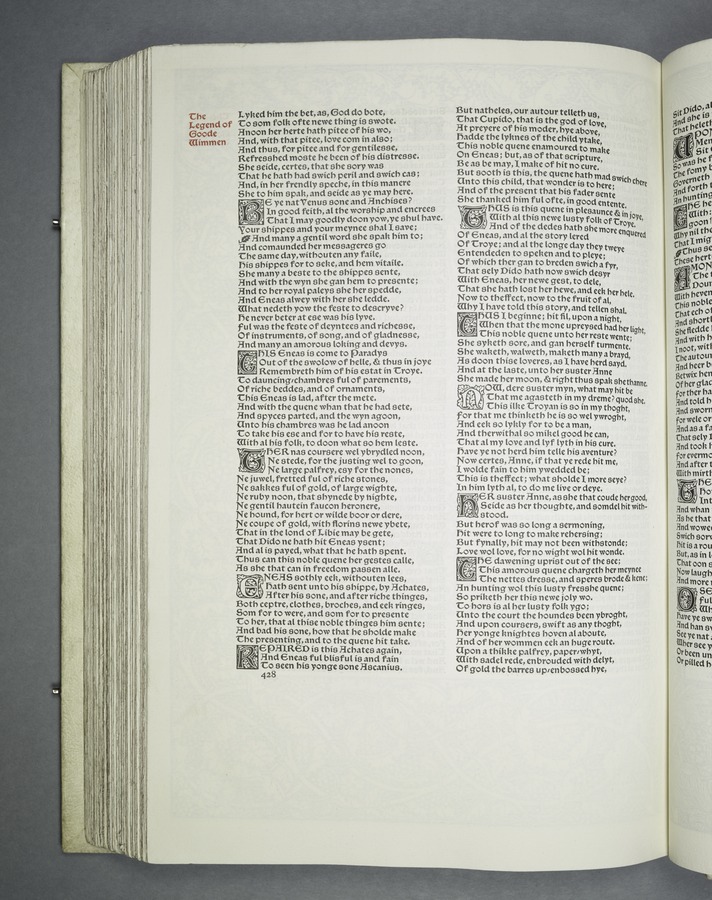 The
Legend of
Goode
Wimmen
Lyked him the bet, as, God do bote,
To som folk ofte newe thing is swote.
Anoon her herte hath pitee of his wo,
And, with that pitee, love com in also;
And thus, for pitee and for gentilesse,
Refresshed moste he been of his distresse.
She seide, certes, that she sory was
That he hath had swich peril and swich cas;
And, in her frendly speche, in this manere
She to him spak, and seide as ye may here.
BE ye nat Venus sone and Anchises?
In good feith, al the worship and encrees
That I may goodly doon yow, ye shul have.
Your shippes and your meynee shal I save;
And many a gentil word she spak him to;
And comaunded her messageres go
The same day, withouten any faile,
His shippes for to seke, and hem vitaile.
She many a beste to the shippes sente,
And with the wyn she gan hem to presente;
And to her royal paleys she her spedde,
And Eneas alwey with her she ledde.
What nedeth yow the feste to descryve?
He never beter at ese was his lyve.
Ful was the feste of deyntees and richesse,
Of instruments, of song, and of gladnesse,
And many an amorous loking and devys.
THIS Eneas is come to Paradys
Out of the swolow of helle, & thus in joye
Remembreth him of his estat in Troye.
To dauncing-chambres ful of parements,
Of riche beddes, and of ornaments,
This Eneas is lad, after the mete.
And with the quene whan that he had sete,
And spyces parted, and the wyn agoon,
Unto his chambres was he lad anoon
To take his ese and for to have his reste,
With al his folk, to doon what so hem leste.
THER nas coursere wel ybrydled noon,
Ne stede, for the justing wel to goon,
Ne large palfrey, esy for the nones,
Ne juwel, fretted ful of riche stones,
Ne sakkes ful of gold, of large wighte,
Ne ruby noon, that shynede by nighte,
Ne gentil hautein faucon heronere,
Ne hound, for hert or wilde boor or dere,
Ne coupe of gold, with florins newe ybete,
That in the lond of Libie may be gete,
That Dido ne hath hit Eneas ysent;
And al is payed, what that he hath spent.
Thus can this noble quene her gestes calle,
As she that can in freedom passen alle.
ENEAS sothly eek, withouten lees,
Hath sent unto his shippe, by Achates,
After his sone, and after riche thinges,
Both ceptre, clothes, broches, and eek ringes,
Som for to were, and som for to presente
To her, that al thise noble thinges him sente;
And bad his sone, how that he sholde make
The presenting, and to the quene hit take.
REPAIRED is this Achates again,
And Eneas ful blisful is and fain
To seen his yonge sone Ascanius.
428
But natheles, our autour telleth us,
That Cupido, that is the god of love,
At preyere of his moder, hye above,
Hadde the lyknes of the child ytake,
This noble quene enamoured to make
On Eneas; but, as of that scripture,
Be as be may, I make of hit no cure.
But sooth is this, the quene hath mad swich chere
Unto this child, that wonder is to here;
And of the present that his fader sente
She thanked him ful ofte, in good entente.
THUS is this quene in plesaunce & in joye,
With al this newe lusty folk of Troye.
And of the dedes hath she more enquered
Of Eneas, and al the story lered
Of Troye; and al the longe day they tweye
Entendeden to speken and to pleye;
Of which ther gan to breden swich a fyr,
That sely Dido hath now swich desyr
With Eneas, her newe gest, to dele,
That she hath lost her hewe, and eek her hele.
Now to theffect, now to the fruit of al,
Why I have told this story, and tellen shal.
THUS I beginne; hit fil, upon a night,
When that the mone upreysed had her light,
This noble quene unto her reste wente;
She syketh sore, and gan herself turmente.
She waketh, walweth, maketh many a brayd,
As doon thise loveres, as I have herd sayd.
And at the laste, unto her suster Anne
She made her moon, & right thus spak she thanne.
NOW, dere suster myn, what may hit be
That me agasteth in my dreme? quod she.
This ilke Troyan is so in my thoght,
For that me thinketh he is so wel ywroght,
And eek so lykly for to be a man,
And therwithal so mikel good he can,
That al my love and lyf lyth in his cure.
Have ye not herd him telle his aventure?
Now certes, Anne, if that ye rede hit me,
I wolde fain to him ywedded be;
This is theffect; what sholde I more seye?
In him lyth al, to do me live or deye.
HER suster Anne, as she that coude her good,
Seide as her thoughte, and somdel hit with-
stood.
But herof was so long a sermoning,
Hit were to long to make rehersing;
But fynally, hit may not been withstonde;
Love wol love, for no wight wol hit wonde.
THE dawening uprist out of the see;
This amorous quene chargeth her meynee
The nettes dresse, and speres brode & kene;
An hunting wol this lusty fresshe quene;
So priketh her this newe joly wo.
To hors is al her lusty folk ygo;
Unto the court the houndes been ybroght,
And upon coursers, swift as any thoght,
Her yonge knightes hoven al aboute,
And of her wommen eek an huge route.
Upon a thikke palfrey, paper-whyt,
With sadel rede, enbrouded with delyt,
Of gold the barres up-enbossed hye,